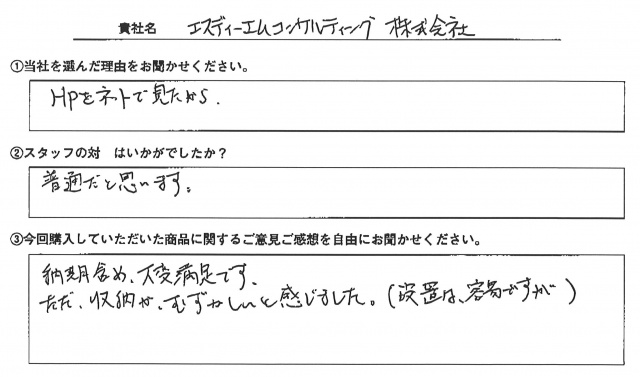 貴社名 エスディーエムコンサルティング 株式会社
①当社を選んだ理由をお聞かせください。
HPをネットで見たから.
②スタッフの対 はいかがでしたか?
普通だと思います。
③今回購入していただいた商品に関するご意見ご感想を自由にお聞かせください。
納期含め、大変満足です、
ただ、収納が、むずかしいと感じました。(設置は、容易ですが)